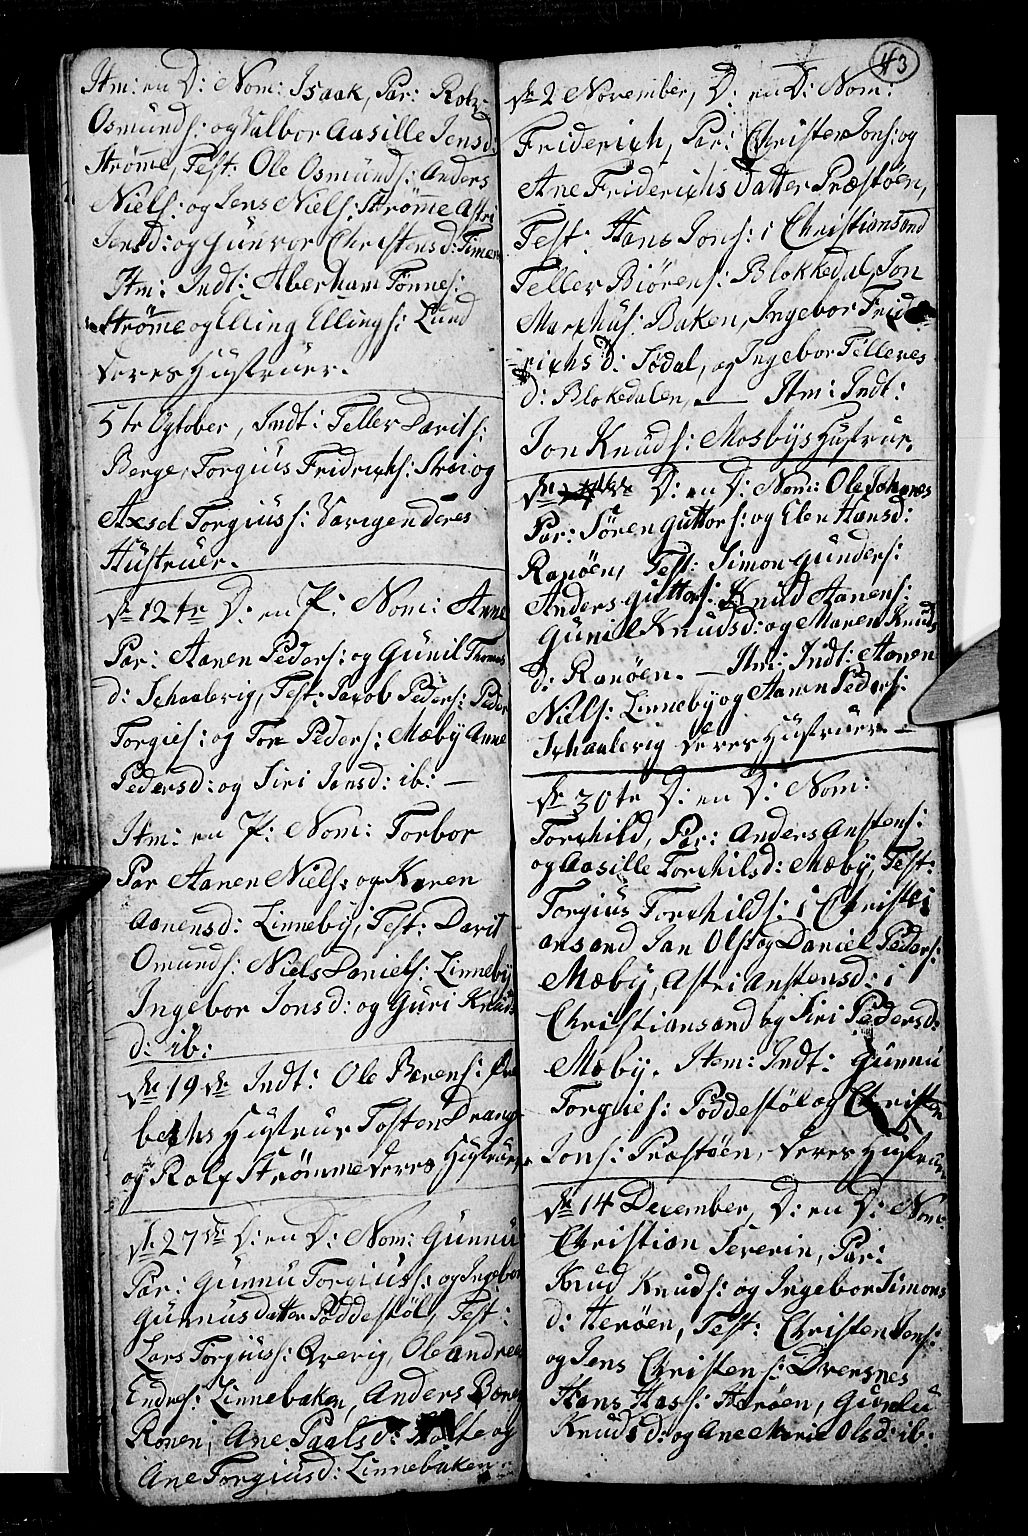 Itm: en D: Nom: Isaak, Par: Rolv
Osmunds: og Valbor Aasille Jensd:
Strømme, Test: Ole Osmunds: Anders
Niels: og Jens Niels: Strømme Astri
Jensd: og Gunvor Christensd: Timen
Itm: Indt: Aberham Tønnes:
Strømme og Elling Ellings: Lund
deres Hustruer.
5te October, Indt: Teller Davids:
Berge, Torgius Fridrichs: Strai og
Axsel Torgius: Varigen deres
Hustruer.
de 12te D: en P: Nom: Anne
Par: Aanen Peders: og Gunil Thomas
d: Schaalevig, Test: Jacob Peders: Peder
Torgies: og Tor Peders: Mæby Anne
Pedersd: og Siri Jansd: ib: —
Itm: en P: Nom: Torbor
Par Aanen Niels: og Karen
Aanensd: Linneby, Test: Davit
Omunds: Niels Daniels: Linneby
Ingebor Jonsd: og Guri Knuds
d: ib:
de 19de Indt: Ole Berens:
Hustrue Tosten Drang
og Rolf Strømme deres Hustruer
de 27de D: en D: Nom: Gunnu
Par: Gunnu Torgius: og Ingebor
Gunnus datter Poddestøl, Test:
Lars Torgius: Qverig, Ole Andrea
Endres: Linnebaken, Anders Børen
Ronen, Ane Paalsd: Holte og
Ane Torgiusd: Linnebaken.
43
de 2 November, D: en D: Nom:
Friderich, Par: Christen Jons: og
Ane Friderichs datter Præstøen,
Test: Hans Jons: i Christiansand
Teller Biørens: Blokkedal, Jon
Marchus: Baken, Ingebor Frid
richs d: Sødal, og Ingebor Telleves
d: Blokedalen, — Itm: Indt:
Jon Knuds: Mosbys Hustrue,
de D: en D: Nom: Ole Johanes
Par: Søren Guttors: og Elen Hansd:
Ranøen, Test: Simon Gunders:
Anders Guttors: Knud Hanens:
Gunil Knudsd: og Maren Knuds
d: Ranøen. — Itm: Indt: Aanen
Niels: Linneby og Aanen Peders:
Schaalevig deres Hustruer —
de 30te D: en D: Nom:
Torchild, Par: Anders Anstens:
og Aasille Torchilsd: Mæby, Test:
Torgius Torchilds: i Christi
ansand Jan Ols: og Daniel Peders:
Mæby, Astri Anstensd: i
Christiansand og Siri Pedersd:
Mæby. Item: Indt: Gunnu
Torgies: Poddestøl og Christen
Jons: Prøstøen, deres Hustruer
de 14 December, D: en D: Nom:
Christian Severin, Par:
Knud Knuds: og Ingebor Simons
d: Herøen, Test: Christen Jens:
og Jens Christens: Dversnes
Hans Hass: Herøen, Gunlu
Knudsd: og Ane Marie Olsd: ib: